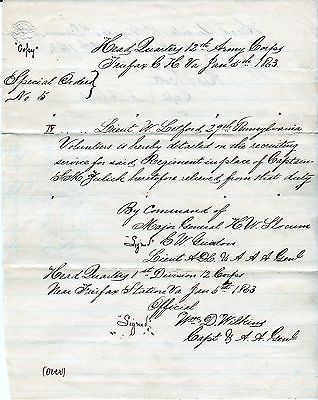 "Copy"
Head Quarters 12th Army Corps
Fairfax C. H. Va Jan 5th 1863
Special Orders }
No 5
IV .... Lieut W. Letford, 29th Pennsylvania
Volunteers is hereby detailed on the recruiting
service for said, Regiment in place of Captain
S. M. Zulick heretofore relieved from that duty
By Command of
Major General H. W. Slocum
"Signed"
Lieut A.D.C. & A. A. A. Genl
Head Quarters 1st Division 12 Corps
Near Fairfax Station Va Jan 5th 1863
Official
"Signed" Wm. D. Wilkins
Capt & A. A. Genl
(Over)